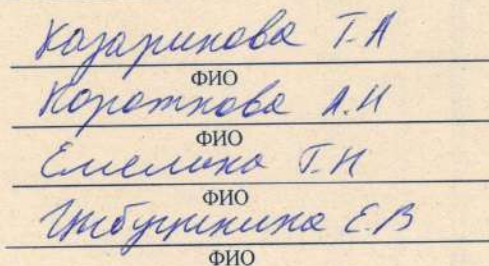 Казаринова Т.А
ФИО
Короткова А.И
ФИО
Емелина Т.Н
ФИО
Е.В
ФИО